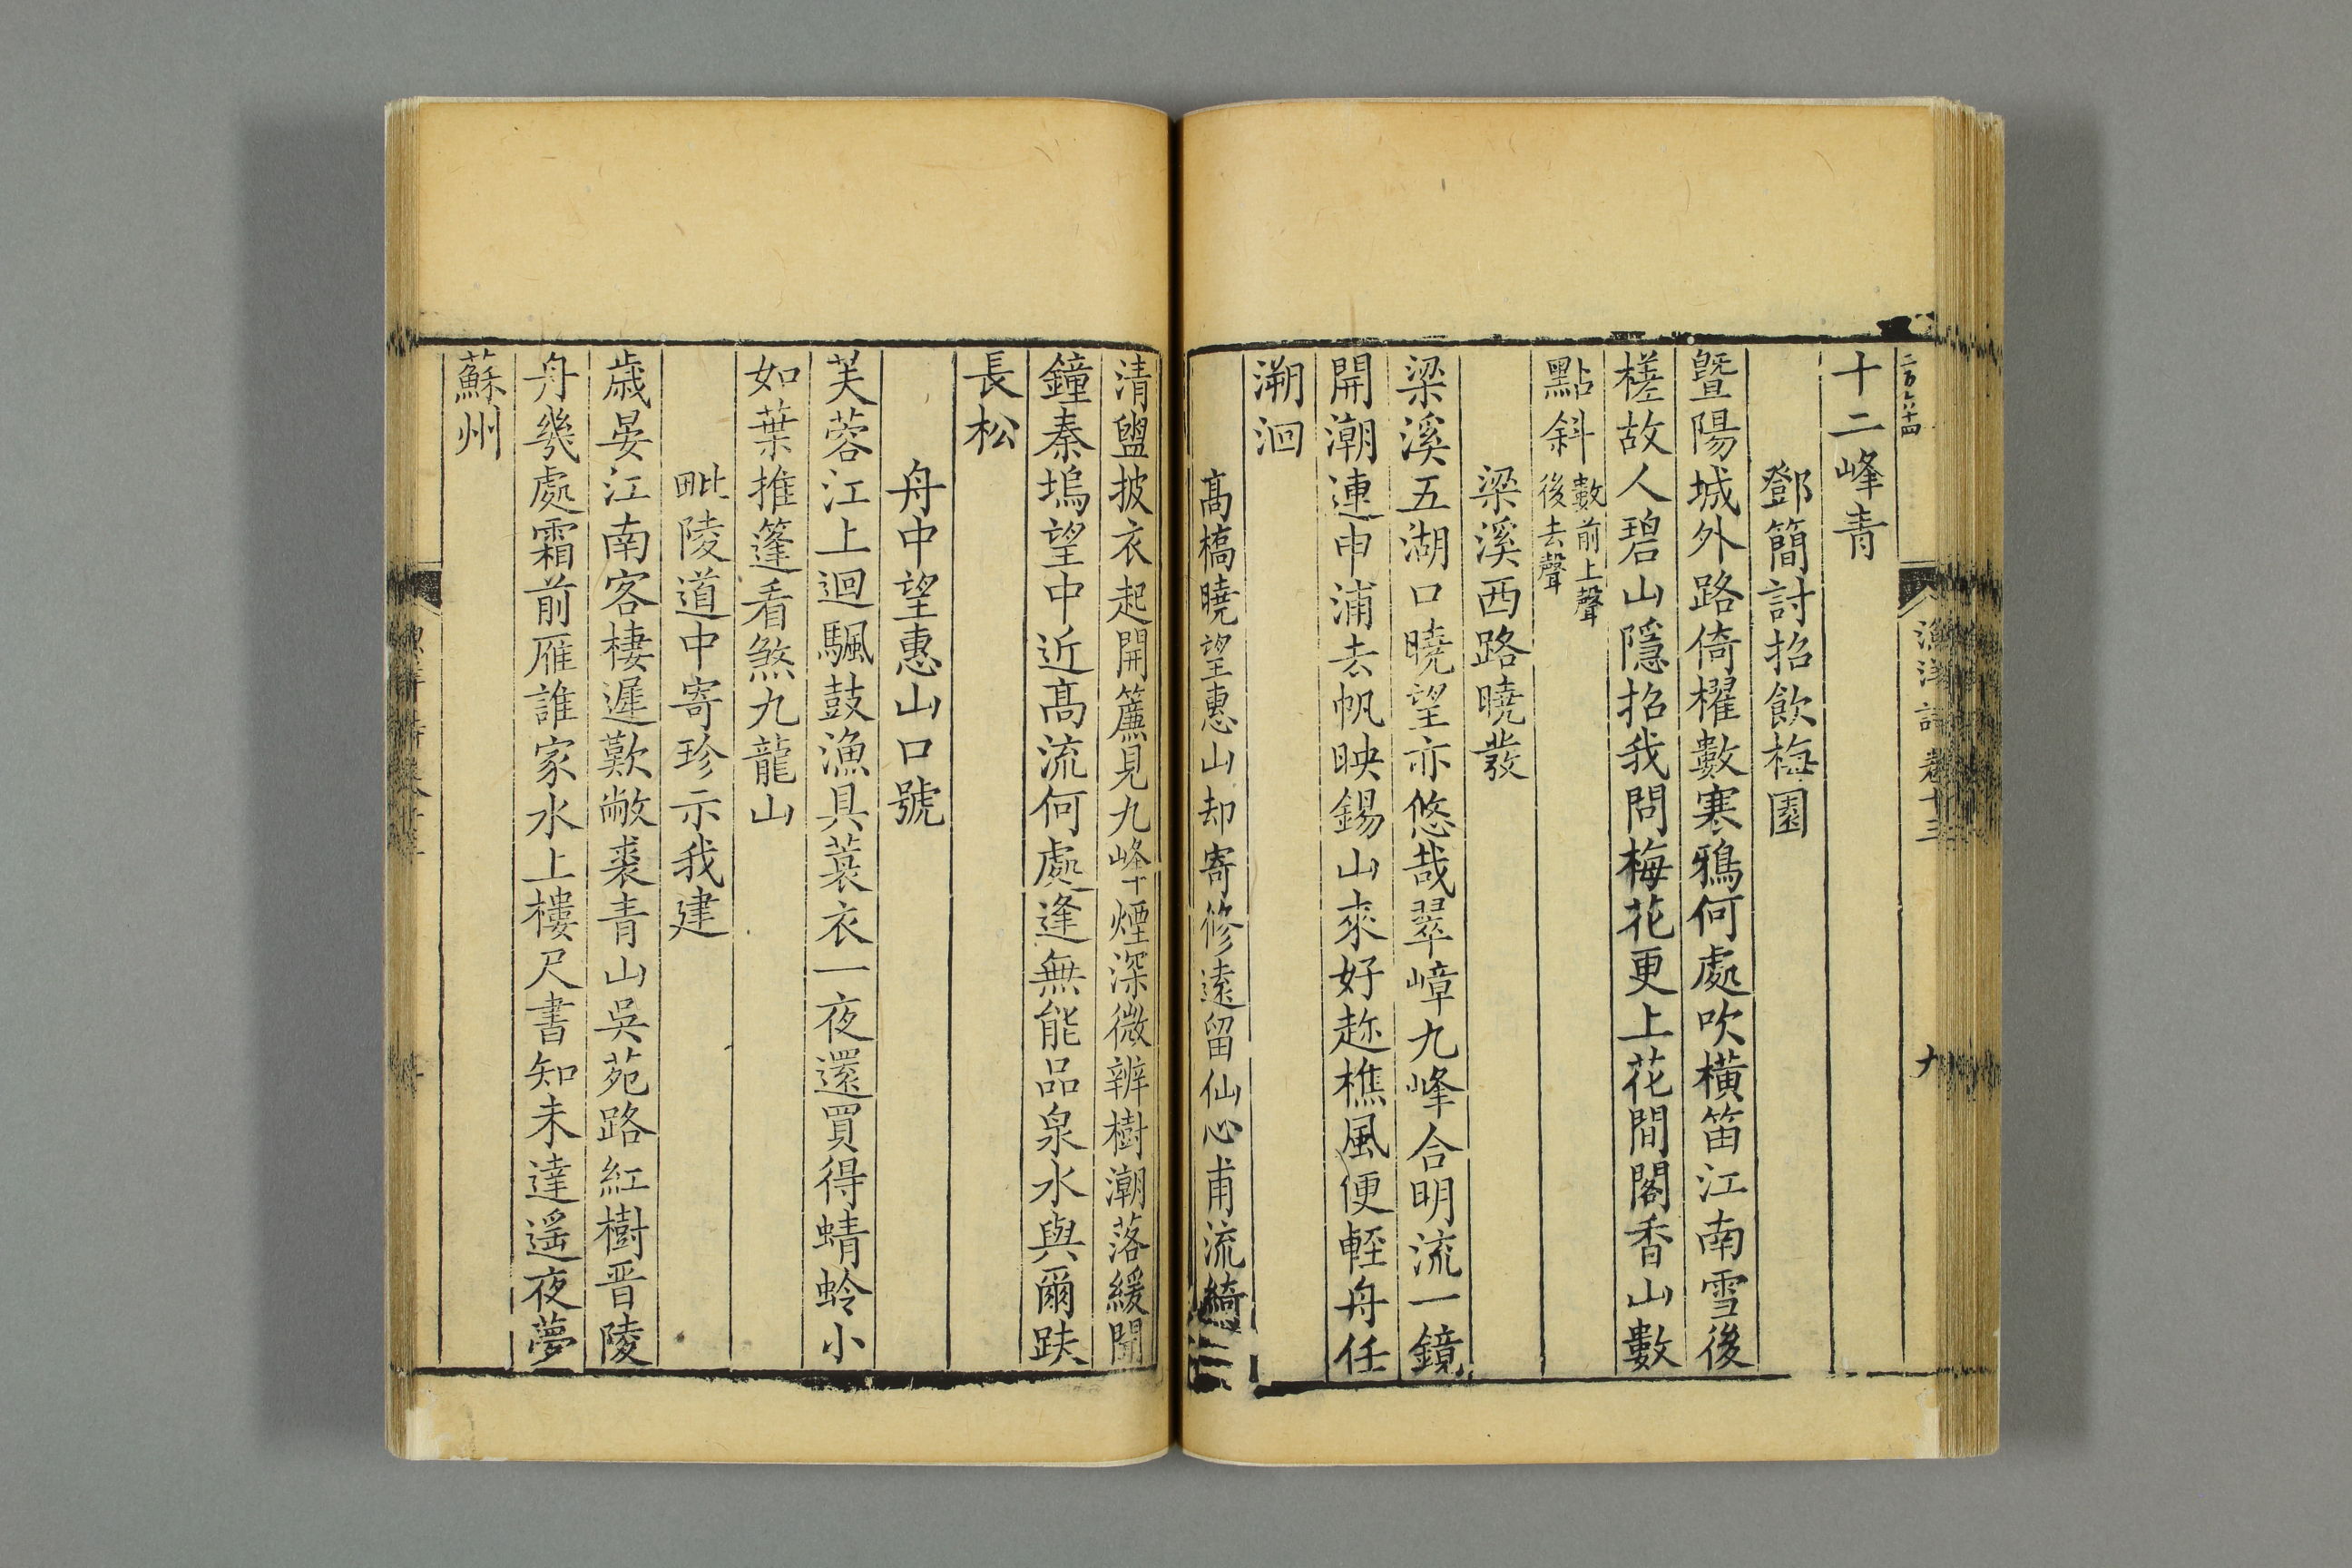 二百六十四
漁洋詩 卷十三
九
十二峰青
鄧簡討招飲梅園
暨陽城外路倚櫂數寒鴉何處吹橫笛江南雪後
槎故人碧山隱招我問梅花更上花間閣香山數
點斜數前上聲後去聲
梁溪西路曉發
梁溪五湖口曉望亦悠哉翠嶂九峰合明流一鏡
開潮連申浦去帆映錫山來好趂樵風便輕舟任
溯洄
高橋曉望惠山却寄修遠留仙心甫流綺
清盥披衣起開簾見九峰煙深微辨樹潮落緩聞
鐘秦塢望中近高流何處逢無能品泉水與爾趺
長松
舟中望惠山口號
芙蓉江上迴颿鼓漁具蓑衣一夜還買得蜻蛉小
如葉推篷看煞九龍山
毗陵道中寄珍示我建
歲晏江南客棲遲歎敝裘青山吳苑路紅樹晋陵
舟幾處霜前雁誰家水上樓尺書知未達遥夜夢
蘇州